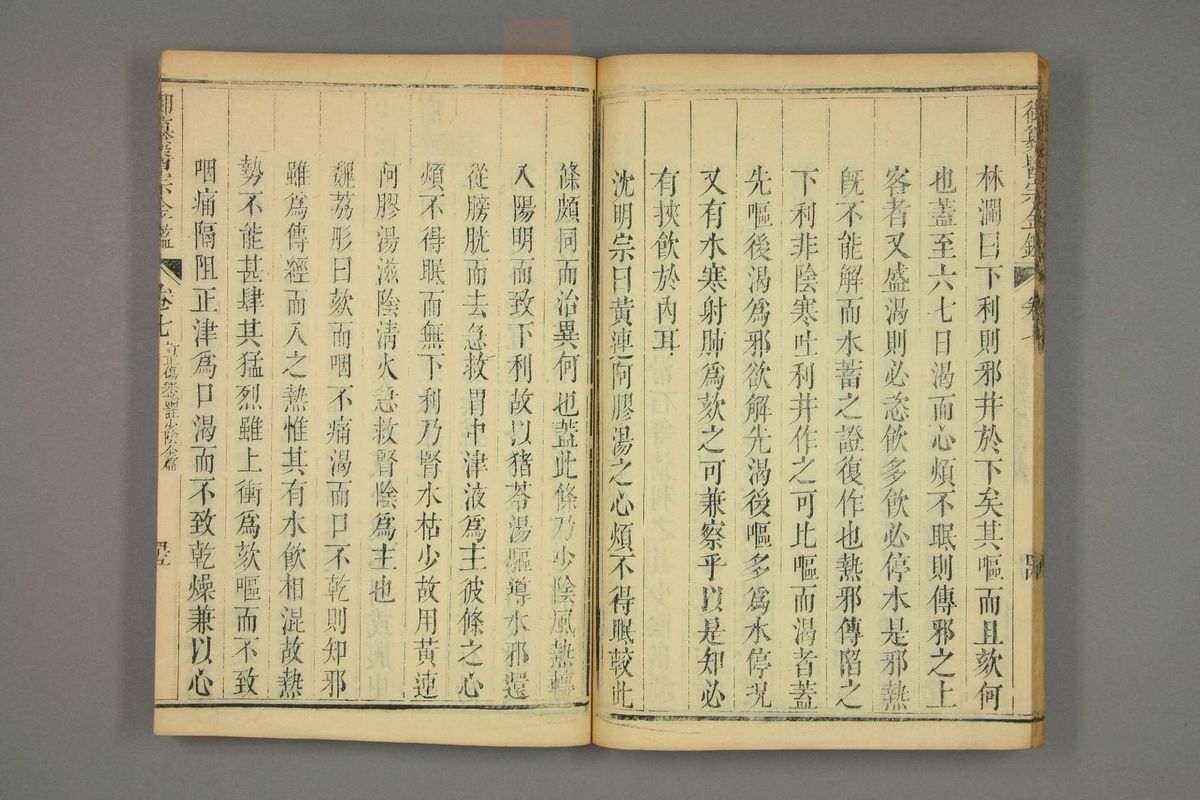 林瀾曰下利則邪并於下矣其嘔而且欬何
也蓋至六七日渴而心煩不眠則傳邪之上
客者又盛渴則必恣飲多飲必停水是邪熱
旣不能解而水蓄之證復作也熱邪傳陷之
下利非陰寒吐利并作之可比嘔而渴者蓋
先嘔後渴爲邪欲解先渴後嘔多爲水停況
又有水寒射肺爲欬之可兼察乎以是知必
有挾飲於內耳
沈明宗曰黃連阿膠湯之心煩不得眠較此
條頗同而治異何也蓋此條乃少陰風熱轉
入陽明而致下利故以猪苓湯驅導水邪還
從膀胱而去急救胃中津液爲主彼條之心
煩不得眠而無下利乃腎水枯少故用黃連
阿膠湯滋陰清火急救腎陰爲主也
魏荔彤曰欬而咽不痛渴而口不乾則知邪
雖爲傳經而入之熱惟其有水飲相混故熱
勢不能甚肆其猛烈雖上衝爲欬嘔而不致
咽痛隔阻正津爲口渴而不致乾燥兼以心
御纂醫宗金鑑 卷七 訂正傷寒論註少陰全篇